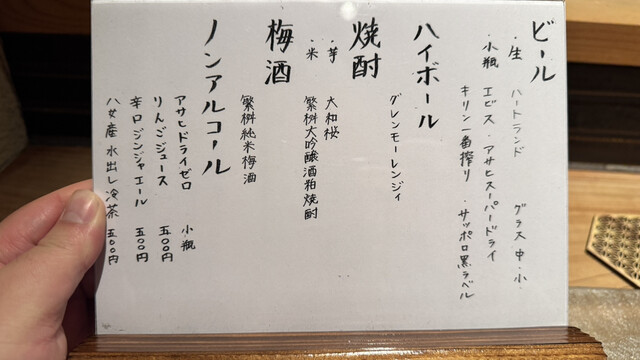 ビール
・生 ハートランド グラス 中・小
・小瓶 エビス・アサヒスーパードライ
キリン一番搾り ・サッポロ黒ラベル
ハイボール
グレンモーレンジィ
焼酎
・芋 大和桜
・米 繁桝大吟醸酒粕焼酎
梅酒
繁桝純米梅酒
ノンアルコール
アサヒドライゼロ 小瓶
りんごジュース 五〇〇円
辛口ジンジャエール 五〇〇円
八女産水出し冷茶 五〇〇円